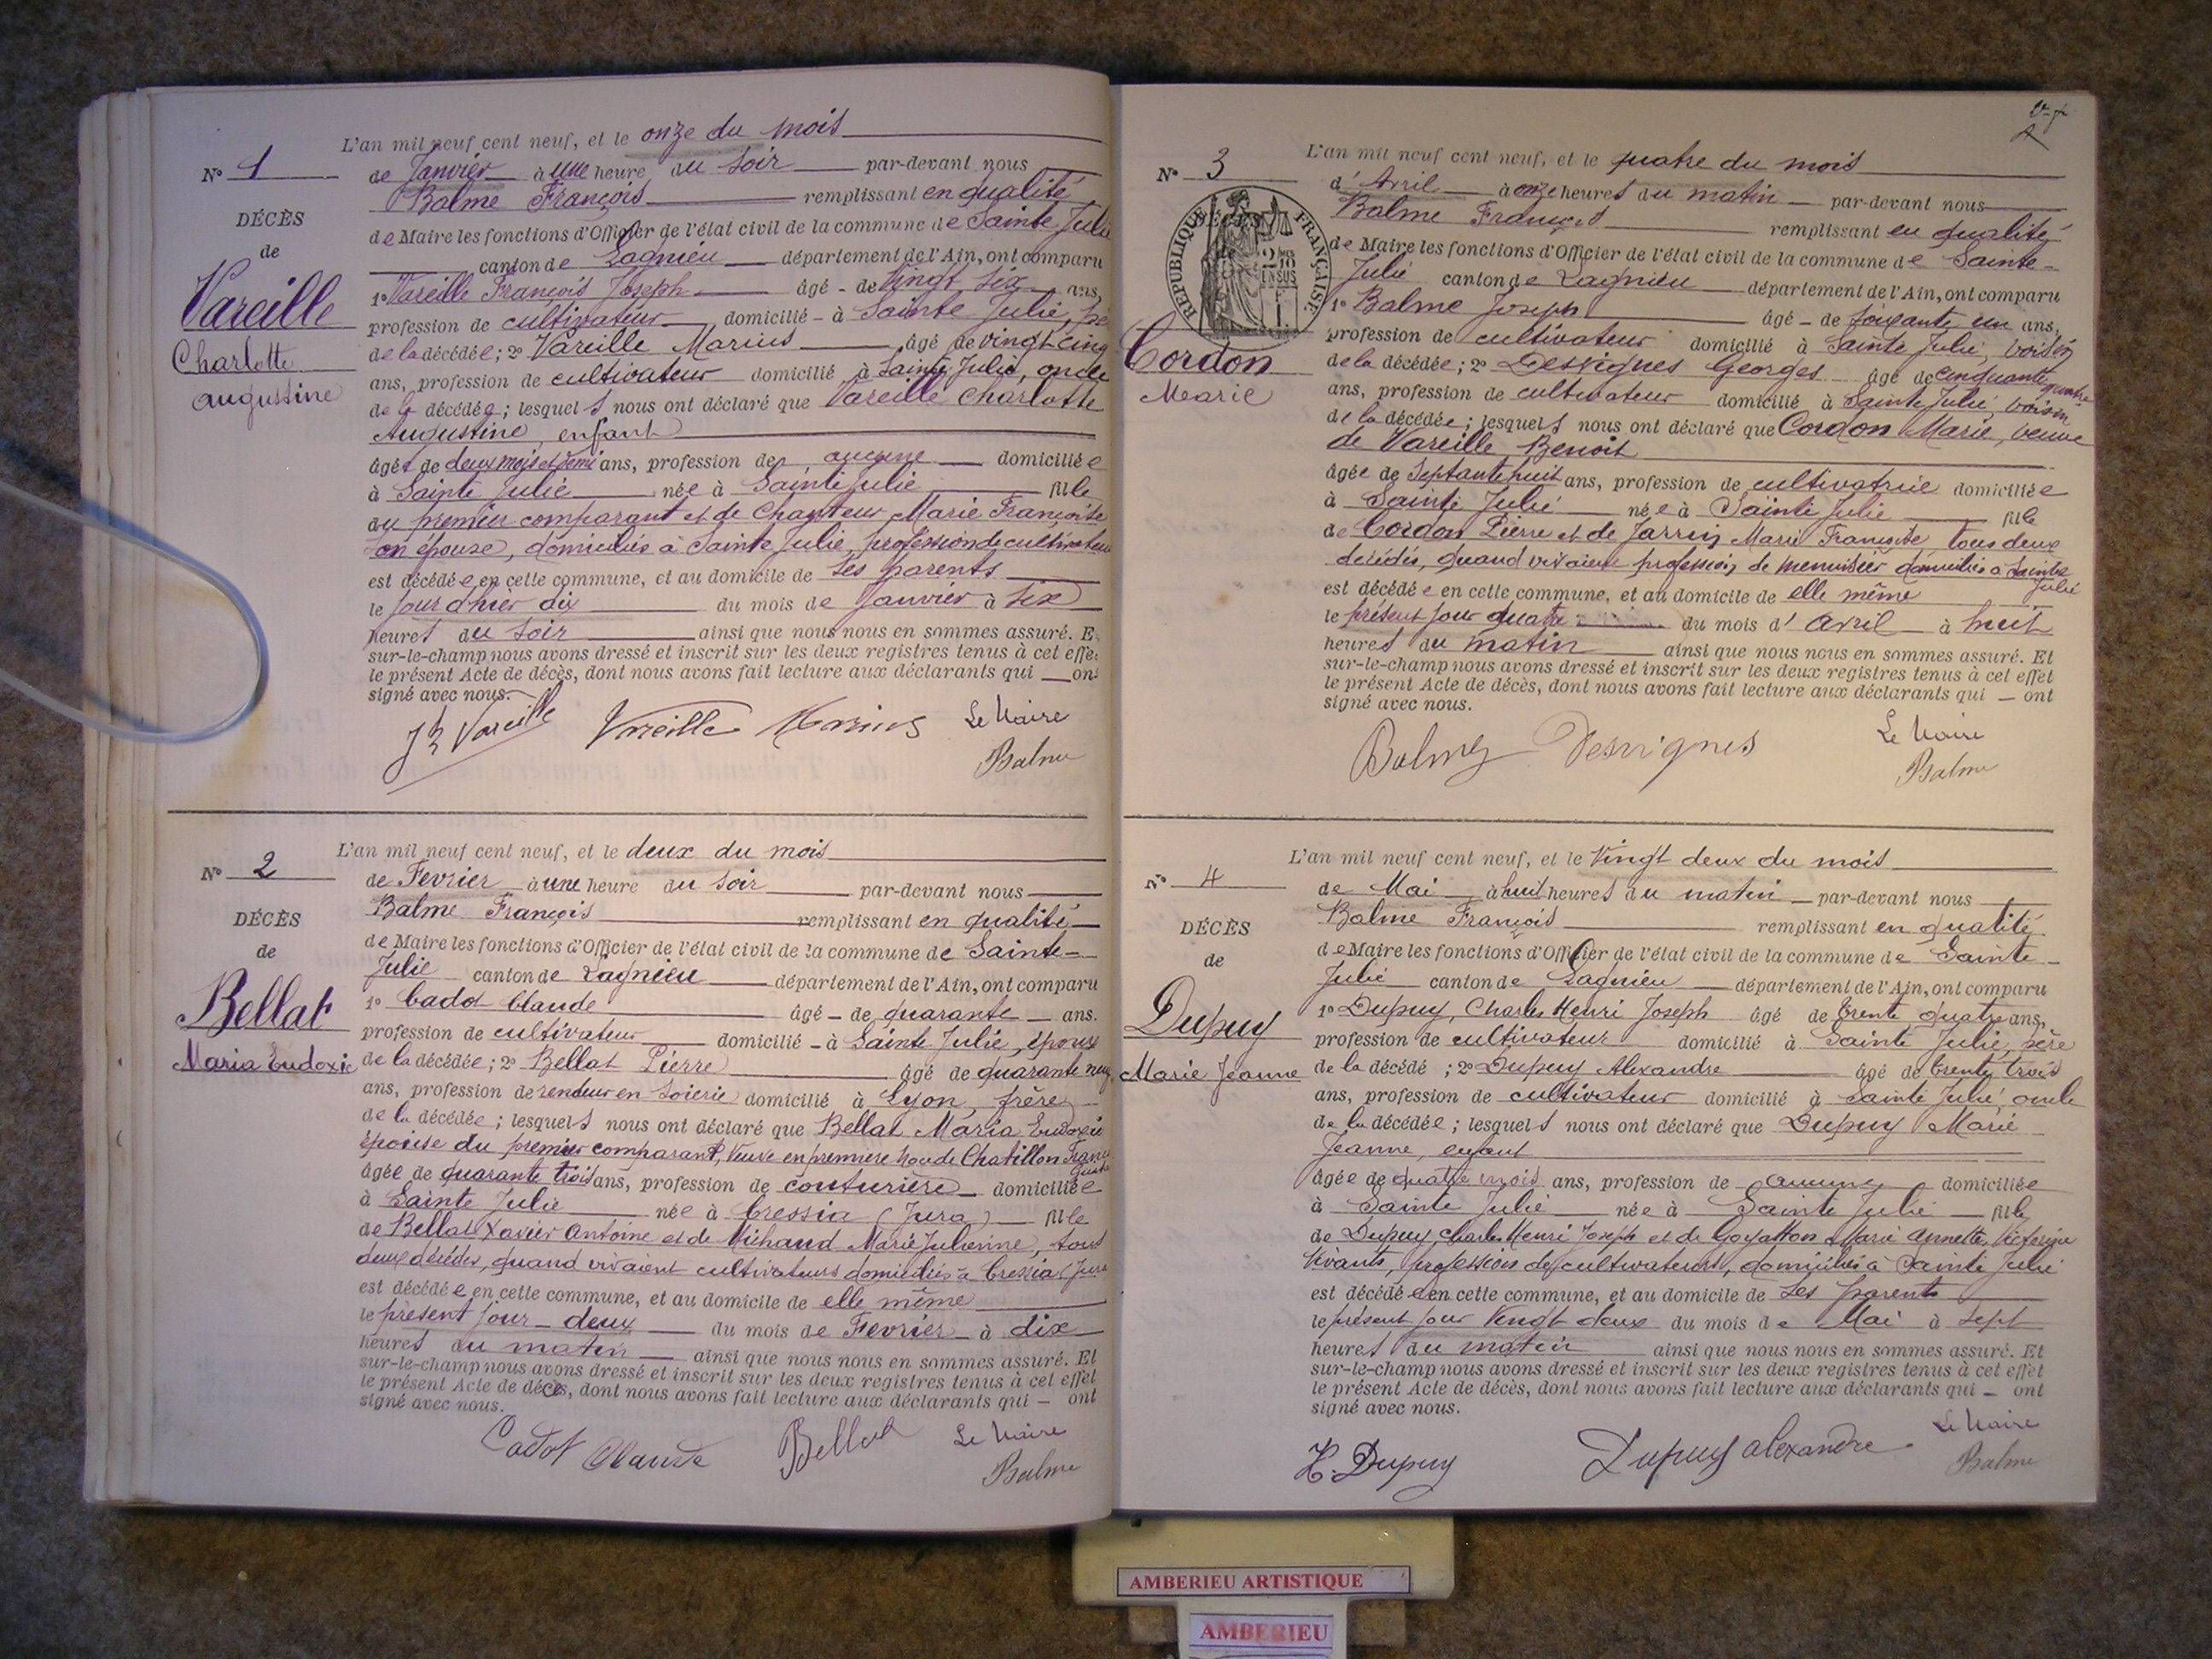 L'an mil neuf cent neuf, et le onze du mois
N° 1
de Janvier à une heure du soir par-devant nous
Balme François remplissant en qualité
DÉCÈS
de Maire les fonctions d'Officier de l'état civil de la commune de Sainte Julie
de
canton de Lagnieu département de l'Ain, ont comparu
Vareille
1° Vareille François Joseph âgé - de Vingt six ans,
profession de cultivateur domicilié - à Sainte Julie, pè
Charlotte
de la décédée ; 2° Vareille Marius âgé de vingt cinq
augustine
ans, profession de cultivateur domicilié à Sainte Julie, oncle
de la décédée ; lesquels nous ont déclaré que Vareille Charlotte
Augustine, enfant
âgée de deux mois et demi ans, profession de aucune domiciliée
à Sainte Julie née à Sainte Julie fille
du premier comparant et de Chanteur Marie Françoise
son épouse, domiciliés à Sainte Julie, profession de cultivateurs
est décédée en cette commune, et au domicile de ses parents
le jour d'hier dix du mois de Janvier à six
heures du soir ainsi que nous nous en sommes assuré. E
sur-le-champ nous avons dressé et inscrit sur les deux registres tenus à cet effe
le présent Acte de décès, dont nous avons fait lecture aux déclarants qui ont
signé avec nous.
Vareille Vareille Marius Le Maire
Balme
L'an mil neuf cent neuf, et le deux du mois
N° 2
de Fevrier à une heure du soir par-devant nous
Balme François remplissant en qualité
DÉCÈS
de Maire les fonctions d'Officier de l'état civil de la commune de Sainte-
de
Julie canton de Lagnieu département de l'Ain, ont comparu
Bellat
1° Cadot Claude âgé - de quarante ans.
profession de cultivateur domicilié - à Sainte Julie, époux
Maria Eudoxie
de la décédée ; 2° Bellat Pierre âgé de quarante neuf
ans, profession de vendeur en soierie domicilié à Lyon, frère
de la décédée ; lesquels nous ont déclaré que Bellat Maria Eudoxie
épouse du premier comparant, Veuve en première de Chatillon
âgée de quarante trois ans, profession de couturière domiciliée
à Sainte Julie née à Cressia (Jura) fille
de Bellat Xavier Antoine et de Michaud Marie Julienne, tous
deux décédés, quand vivaient cultivateurs domiciliés à Cressia (Jura
est décédée en cette commune, et au domicile de elle même
le présent jour deux du mois de Fevrier à dix
heures du matin ainsi que nous nous en sommes assuré. Et
sur-le-champ nous avons dressé et inscrit sur les deux registres tenus à cet effet
le présent Acte de décès, dont nous avons fait lecture aux déclarants qui - ont
signé avec nous.
Cadot Claude Bellat Le Maire
Balme
L'an mil neuf cent neuf, et le quatre du mois
N° 3
d'Avril à onze heures du matin par-devant nous
Balme François remplissant en qualité
RÉPUBLIQUE FRANÇAISE
de Maire les fonctions d'Officier de l'état civil de la commune de Sainte-
Julie canton de Lagnieu département de l'Ain, ont comparu
1° Balme Joseph âgé - de soixante un ans,
profession de cultivateur domicilié à Sainte Julie, voisin
Cordon
de la décédée ; 2° Desvignes Georges âgé de cinquante quatre
Marie
ans, profession de cultivateur domicilié à Sainte Julie, voisin
de la décédée ; lesquels nous ont déclaré que Cordon Marie, veuve
de Vareille Benoit
âgée de Septante huit ans, profession de cultivatrice domiciliée
à Sainte Julie née à Sainte Julie fille
de Cordon Pierre et de Jarrin Marie Françoise, tous deux
décédés, quand vivaient profession de menuisier domiciliés à Sainte
Julie
est décédée en cette commune, et au domicile de elle même
le présent jour quatre du mois d'avril à huit
heures du matin ainsi que nous nous en sommes assuré. Et
sur-le-champ nous avons dressé et inscrit sur les deux registres tenus à cet effet
le présent Acte de décès, dont nous avons fait lecture aux déclarants qui - ont
signé avec nous.
Balme Desvignes Le Maire
Balme
L'an mil neuf cent neuf, et le Vingt deux du mois
N° 4
de Mai à huit heures du matin par-devant nous
Balme François remplissant en qualité
DÉCÈS
de Maire les fonctions d'Officier de l'état civil de la commune de Sainte-
de
Julie canton de Lagnieu département de l'Ain, ont comparu
Dupuy
1° Dupuy, Charles Henri Joseph âgé de trente quatre ans,
profession de cultivateur domicilié à Sainte Julie, père
Marie Jeanne
de la décédé ; 2° Dupuy Alexandre âgé de trente trois
ans, profession de cultivateur domicilié à Sainte Julie, oncle
de la décédée ; lesquels nous ont déclaré que Dupuy Marie
Jeanne, enfant
âgée de quatre mois ans, profession de aucune domiciliée
à Sainte Julie née à Sainte Julie fille
de Dupuy Charles Henri Joseph et de Marie Annette
Vivants, profession de cultivateurs, domiciliés à Sainte Julie
est décédée en cette commune, et au domicile de ses parents
le présent jour Vingt deux du mois de Mai à sept
heures du matin ainsi que nous nous en sommes assuré. Et
sur-le-champ nous avons dressé et inscrit sur les deux registres tenus à cet effet
le présent Acte de décès, dont nous avons fait lecture aux déclarants qui - ont
signé avec nous.
H. Dupuy Dupuy alexandre Le Maire
Balme
AMBERIEU ARTISTIQUE
AMBERIEU